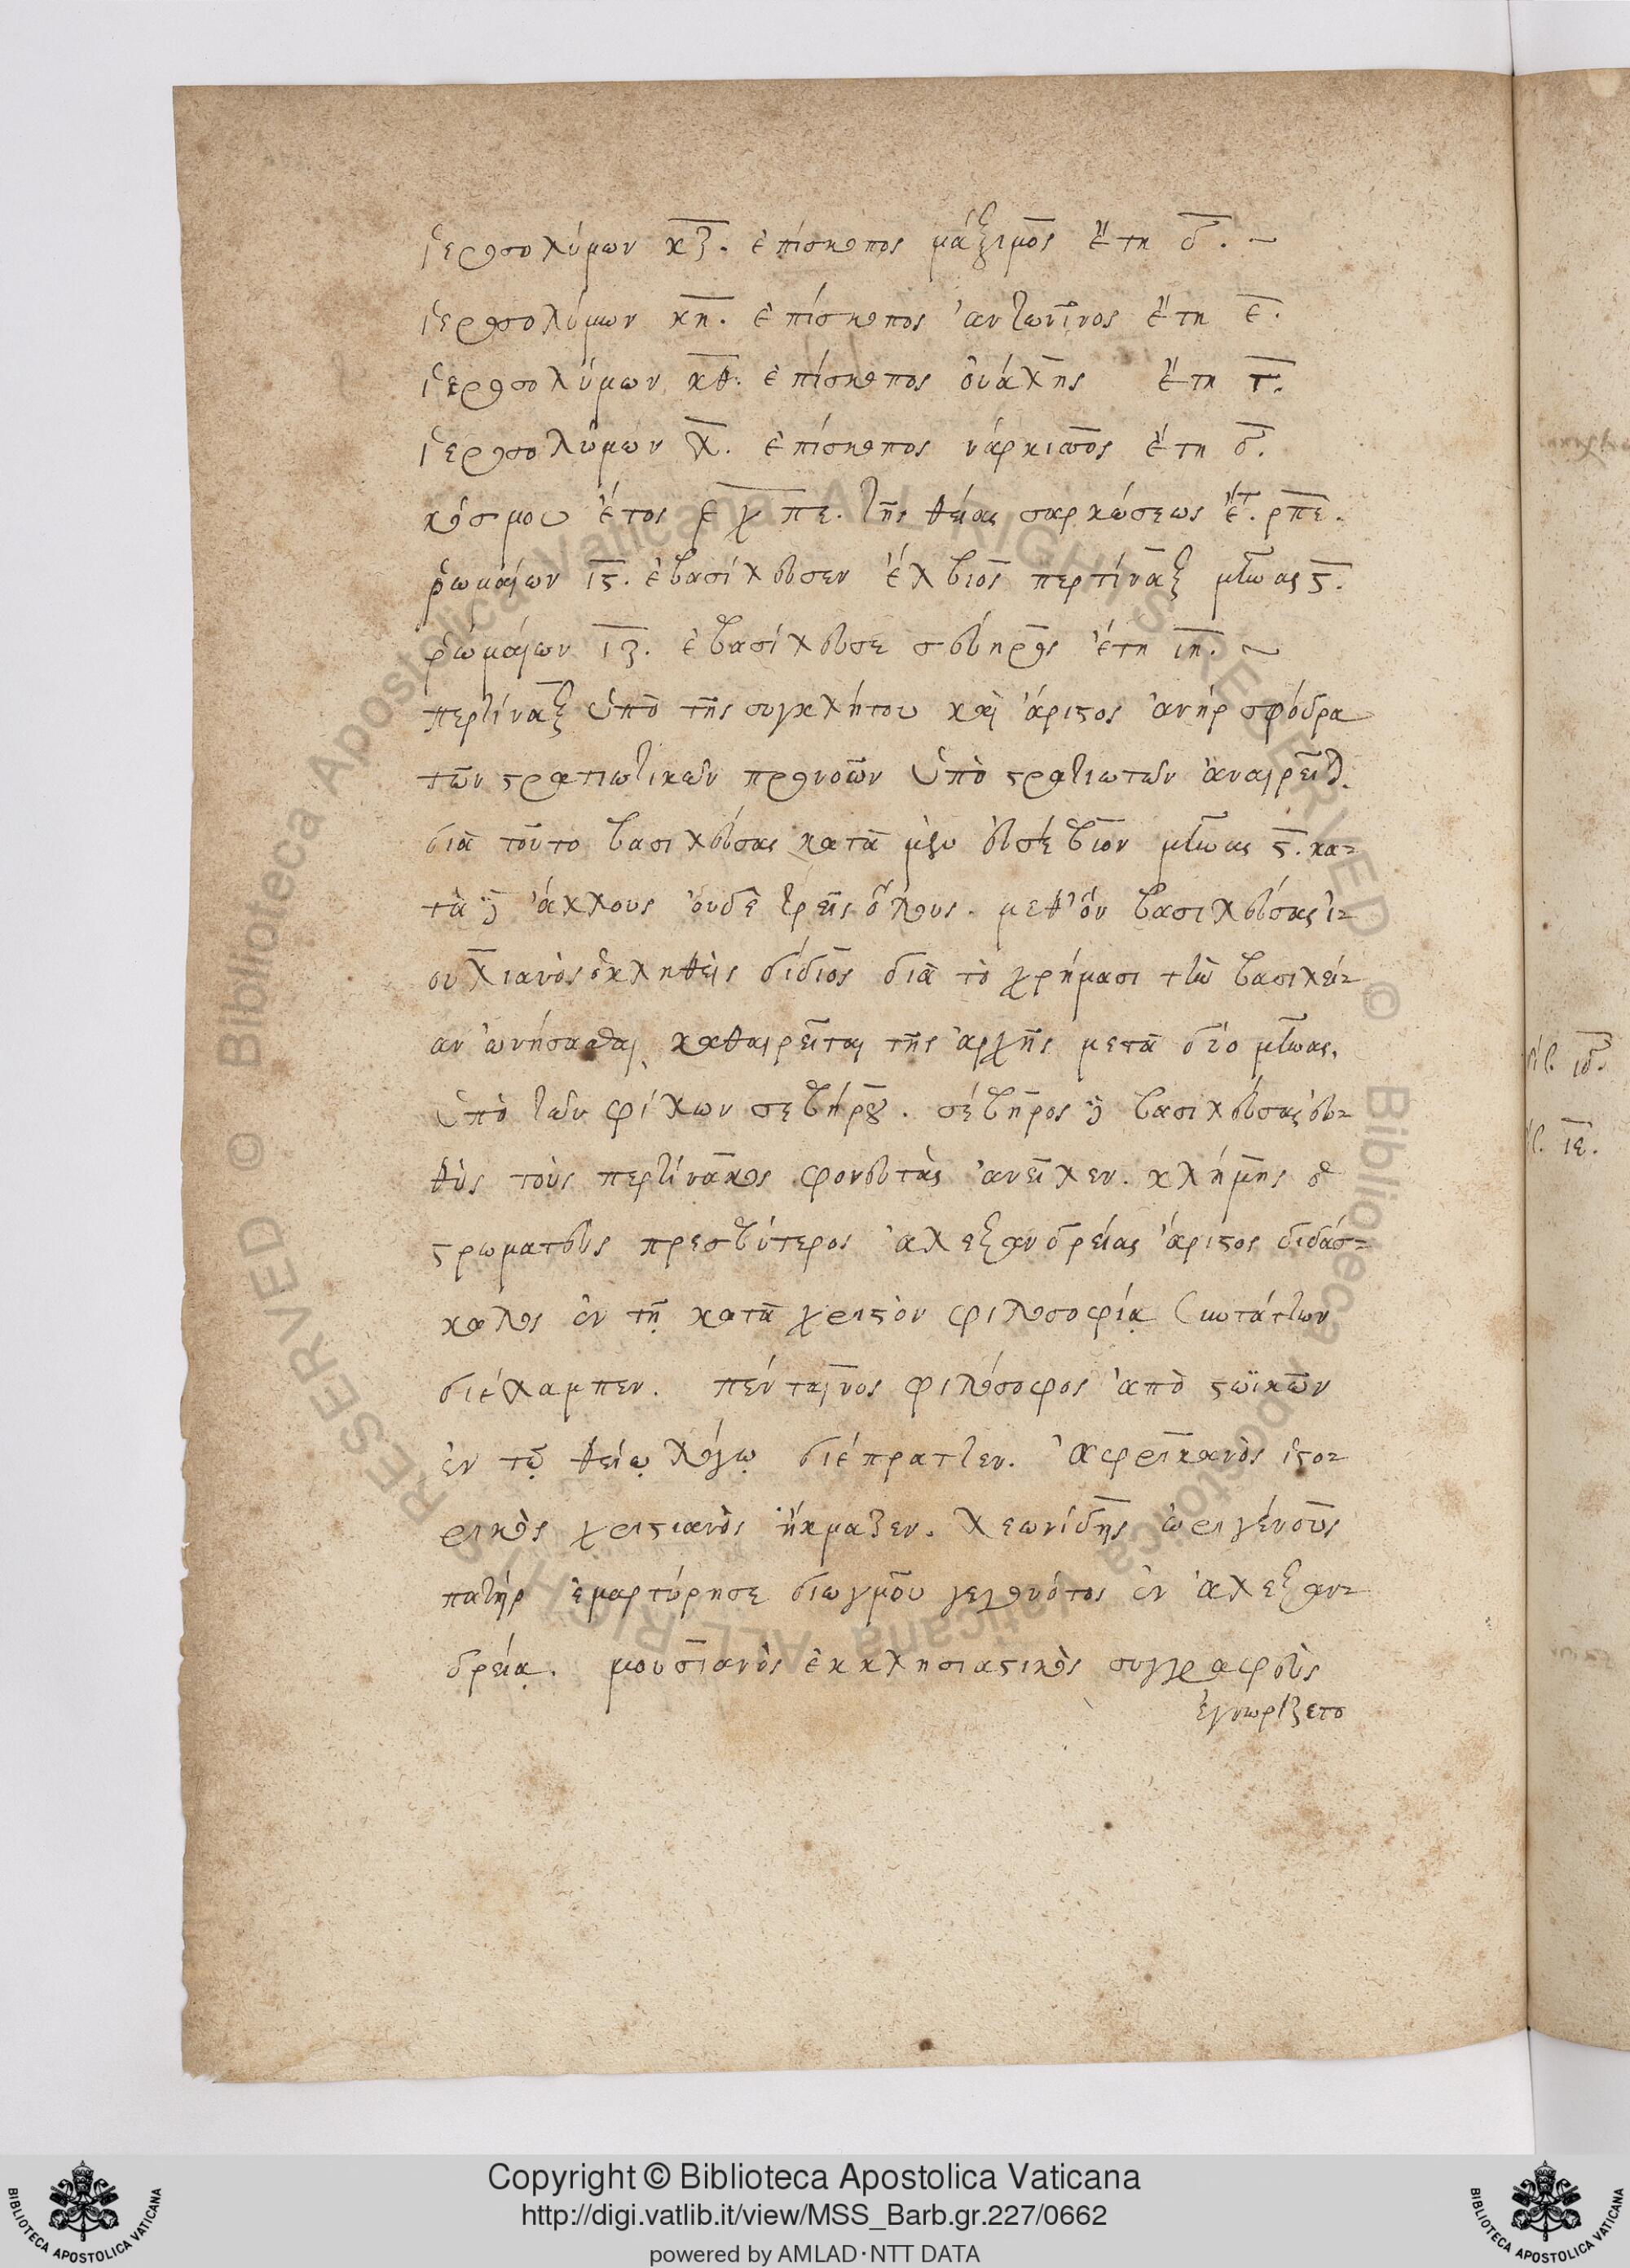 ἱεροσολύμων κζ. ἐπίσκοπος μάξιμος ἔτη δ. ~
ἱεροσολύμων κη. ἐπίσκοπος ἀντωνῖνος ἔτη ε.
ἱεροσολύμων κθ. ἐπίσκοπος οὐάλης ἔτη γ.
ἱεροσολύμων λ. ἐπίσκοπος νάρκισος ἔτη δ.
κόσμου ἔτος ͵εχπε. τῆς θείας σαρκώσεως ἔτ. ρπε.
ῥωμαίων ις. ἐβασίλευσεν ἔλβιος περτίναξ μῆνας ς.
ῥωμαίων ιζ. ἐβασίλευσε σευηρος ἔτη ιη. ~
περτίναξ ὑπὸ τῆς συγκλήτου καὶ ἄριστος ἀνήρ σφόδρα
τῶν στρατιωτικῶν προνοῶν ὑπὸ στρατιωτῶν ἀναιρεῖτ.
διὰ τοῦτο βασιλεύσας κατὰ μὲν εὐσέβιον μῆνας ς. κα-
τὰ δὲ ἄλλους οὐδὲ τρεῖς ὅλους. μεθ' ὃν βασιλεύσας ἰ-
ουλιανὸς ὁ κληθεὶς δίδιος διὰ τὸ χρήμασι τὴν βασιλεί-
αν ὠνήσασθαι, καθαιρεῖται τῆς ἀρχῆς μετὰ δύο μῆνας.
ὑπὸ τῶν φίλων σεβήρου. σέβηρος δὲ βασιλεύσας εὐ-
θὺς τοὺς περτίνακος φονευτὰς ἀνεῖλεν. κλήμης ὁ
στρωματεὺς πρεσβύτερος ἀλεξανδρείας ἄριστος διδάσ-
καλος ἐν τῇ κατὰ χριστὸν φιλοσοφίᾳ
διέλαμπεν. πένταινος φιλόσοφος ἀπὸ στωϊκῶν
ἐν τῷ θείῳ λόγῳ διέπραττεν. ἀφρικανὸς ἱστο-
ρικὸς χριστιανὸς ἤκμαζεν. λεωνίδης ὠριγένους
πατὴρ ἐμαρτύρησε διωγμοῦ γεγονότος ἐν ἀλεξαν-
δρείᾳ. μουσιανὸς ἐκκλησιαστικὸς συγγραφεὺς
ἐγνωρίζετο
Copyright © Biblioteca Apostolica Vaticana
http://digi.vatlib.it/view/MSS_Barb.gr.227/0662
powered by AMLAD·NTT DATA